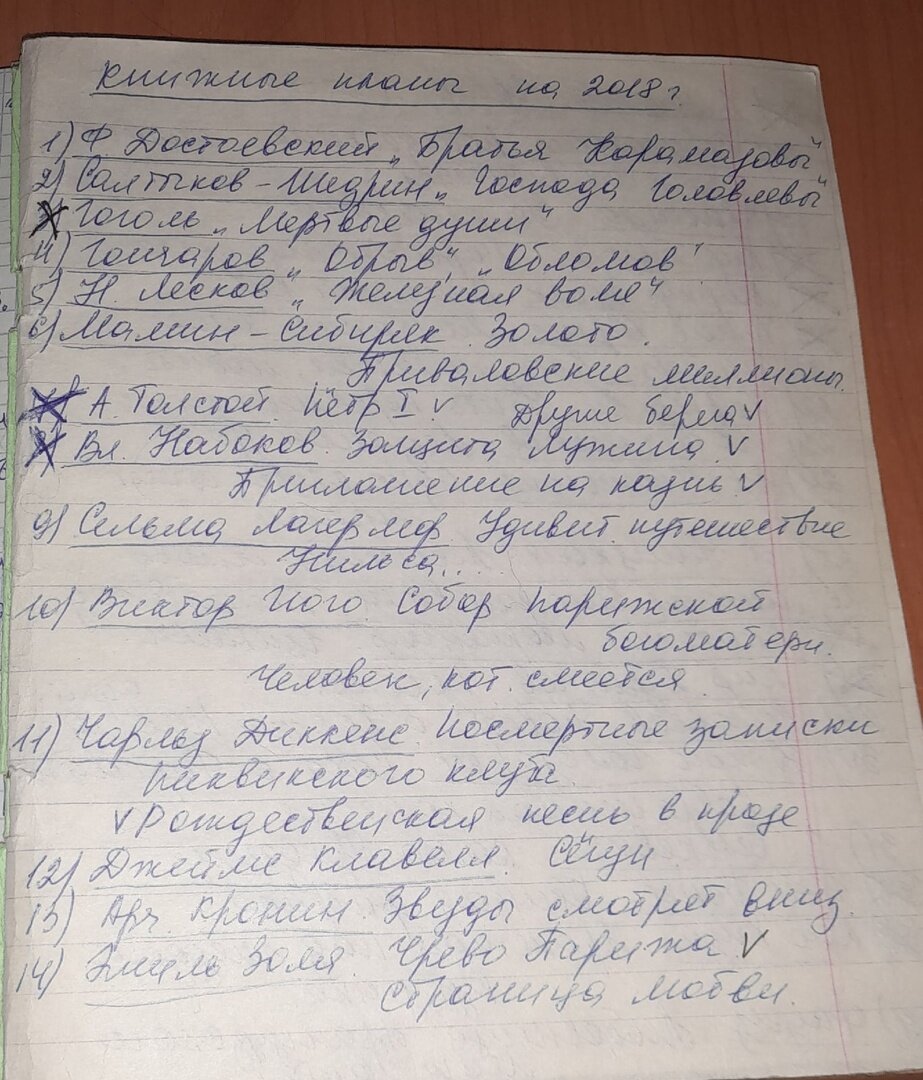 Книжные планы на 2018 г.
1) Ф Достоевский „Братья Карамазовы"
2) Салтыков-Щедрин „Господа Головлевы"
3) Гоголь „Мертвые души"
4) Гончаров „Обрыв", „Обломов"
5) Н. Лесков „Железная воля"
6) Мамин-Сибиряк. Золото.
Приваловские миллионы.
А. Толстой. Пётр I. v Другие берега v
8) Вл. Набоков. Защита Лужина. v
Приглашение на казнь. v
9) Сельма Лагерлёф. Удивит. путешествие
Нильса...
10) Виктор Гюго. Собор парижской
богоматери.
Человек, кот. смеётся.
11) Чарльз Диккенс. Посмертные записки
пиквикского клуба.
v Рождественская песнь в прозе
12) Джеймс Клавелл. Сёгун
13) Арч. Кронин. Звезды смотрят вниз.
14) Эмиль Золя. Чрево Парижа v
Страница любви.